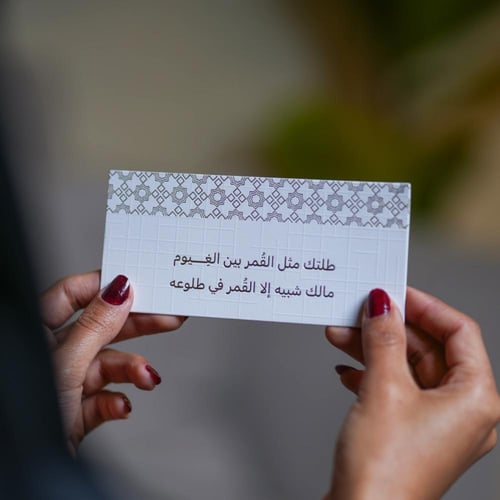 طلتك مثل القُمر بين الغِيـــوم
مالك شبيه إلا القُمر في طلوعه